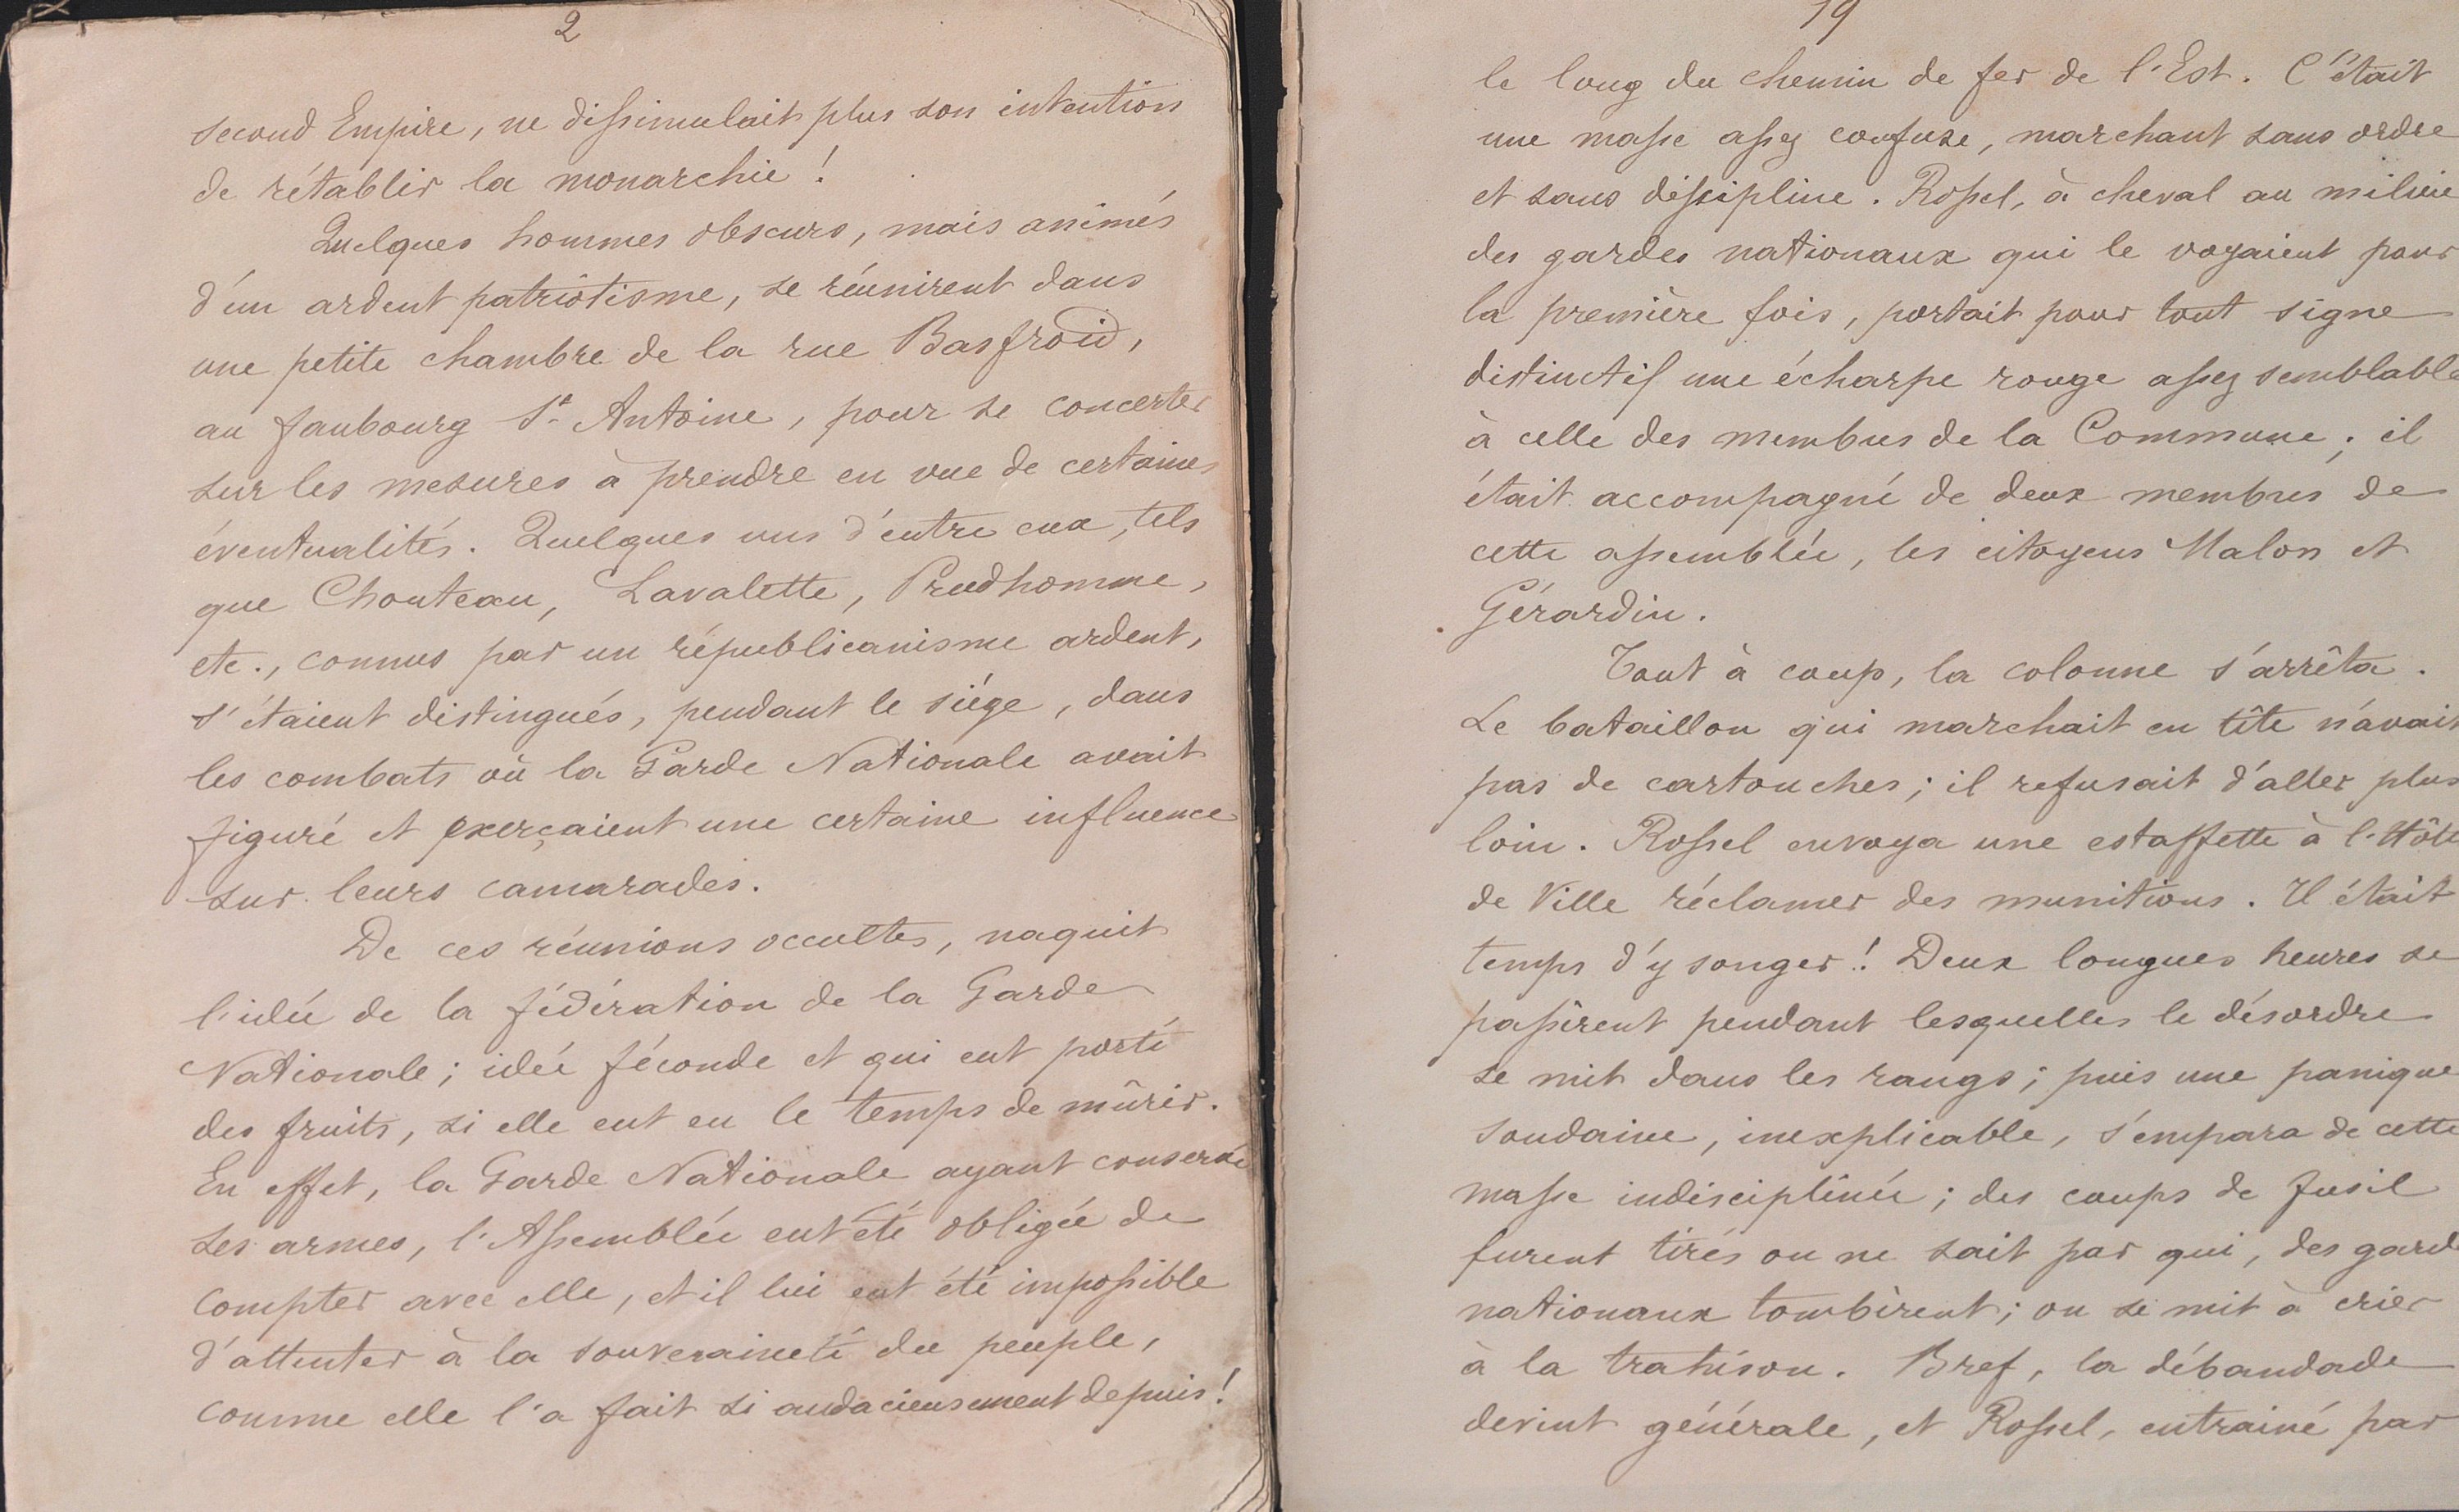 2
second Empire, ne dissimulait plus son intention
de rétablir la monarchie !
Quelques hommes obscurs, mais animés
d'un ardent patriotisme, se réunirent dans
une petite chambre de la rue Basfroid,
au faubourg St Antoine, pour se concerter
sur les mesures à prendre en vue de certaines
éventualités. Quelques uns d'entre eux, tels
que Chouteau, Lavalette, Prudhomme,
etc., connus par un républicanisme ardent,
s'étaient distingués, pendant le siége, dans
les combats où la Garde Nationale avait
figuré et exerçaient une certaine influence
sur leurs camarades.
De ces réunions occultes, naquit
l'idée de la fédération de la Garde
Nationale ; idée féconde et qui eut porté
des fruits, si elle eut eu le temps de mûrir.
En effet, la Garde Nationale ayant conservé
ses armes, l'Assemblée eut été obligée de
compter avec elle, et il lui eut été impossible
d'attenter à la souveraineté du peuple,
comme elle l'a fait si audacieusement depuis !
19
le long du chemin de fer de l'Est. C'était
une masse assez confuse, marchant sans ordre
et sans discipline. Rossel, à cheval au milieu
des gardes nationaux qui le voyaient pour
la première fois, portait pour tout signe
distinctif une écharpe rouge assez semblable
à celle des membres de la Commune ; il
était accompagné de deux membres de
cette assemblée, les citoyens Malon et
Gérardin.
Tout à coup, la colonne s'arrêta.
Le bataillon qui marchait en tête n'avait
pas de cartouches ; il refusait d'aller plus
loin. Rossel envoya une estaffette à l'Hôte
de Ville réclamer des munitions. Il était
temps d'y songer ! Deux longues heures se
passèrent pendant lesquelles le désordre
se mit dans les rangs ; puis une panique
soudaine, inexplicable, s'empara de cette
masse indisciplinée ; des coups de fusil
furent tirés on ne sait par qui, des gard
nationaux tombèrent ; on se mit à crier
à la trahison. Bref, la débandade
devint générale, et Rossel, entrainé par